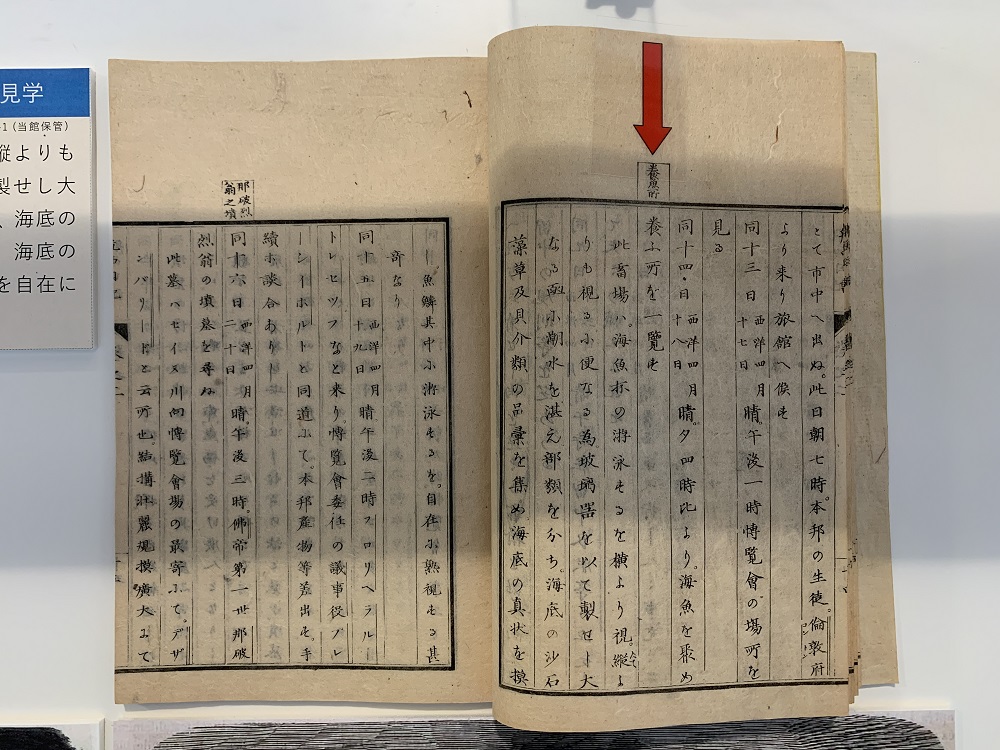 見学
1（当館保管）
縦よりも
製せし大
、海底の
海底の
を自在に
養魚所
とて市中へ出ぬ。此日朝七時。本邦の生徒。倫敦府
より来り旅館へ候す
同十三日 西洋四月十七日 晴。午後一時博覧會の場所を
見る
同十四日 西洋四月十八日 晴。夕四時比より。海魚を聚め
養ふ所を一覧す
此畜場ハ。海魚抔の游泳するを横より視。縦よ
りも視るに便なる為玻璃器を以て製せし大
なる函に潮水を湛え部類をわかち。海底の沙石
藻草及貝介類の品彙を集め海底の真状を模
那破烈翁之墳
し魚鱗其中に游泳するを。自在に熟視する甚
奇なり
同十五日 西洋四月十九日 晴午後二時フロリヘラルー
トレセツフなと来り博覧會委任の議事役ブレ
ーシーホルトと同道にて。本邦産物等差出す。手
續に談合あり
同十六日 西洋四月二十日 晴。午後三時。佛帝第一世那破
烈翁の墳墓を尋ぬ
此墓ハセイヌ川向博覧會場の最寄にて。デザ
ンバリードと云所也。結構壮麗規模廣大にて